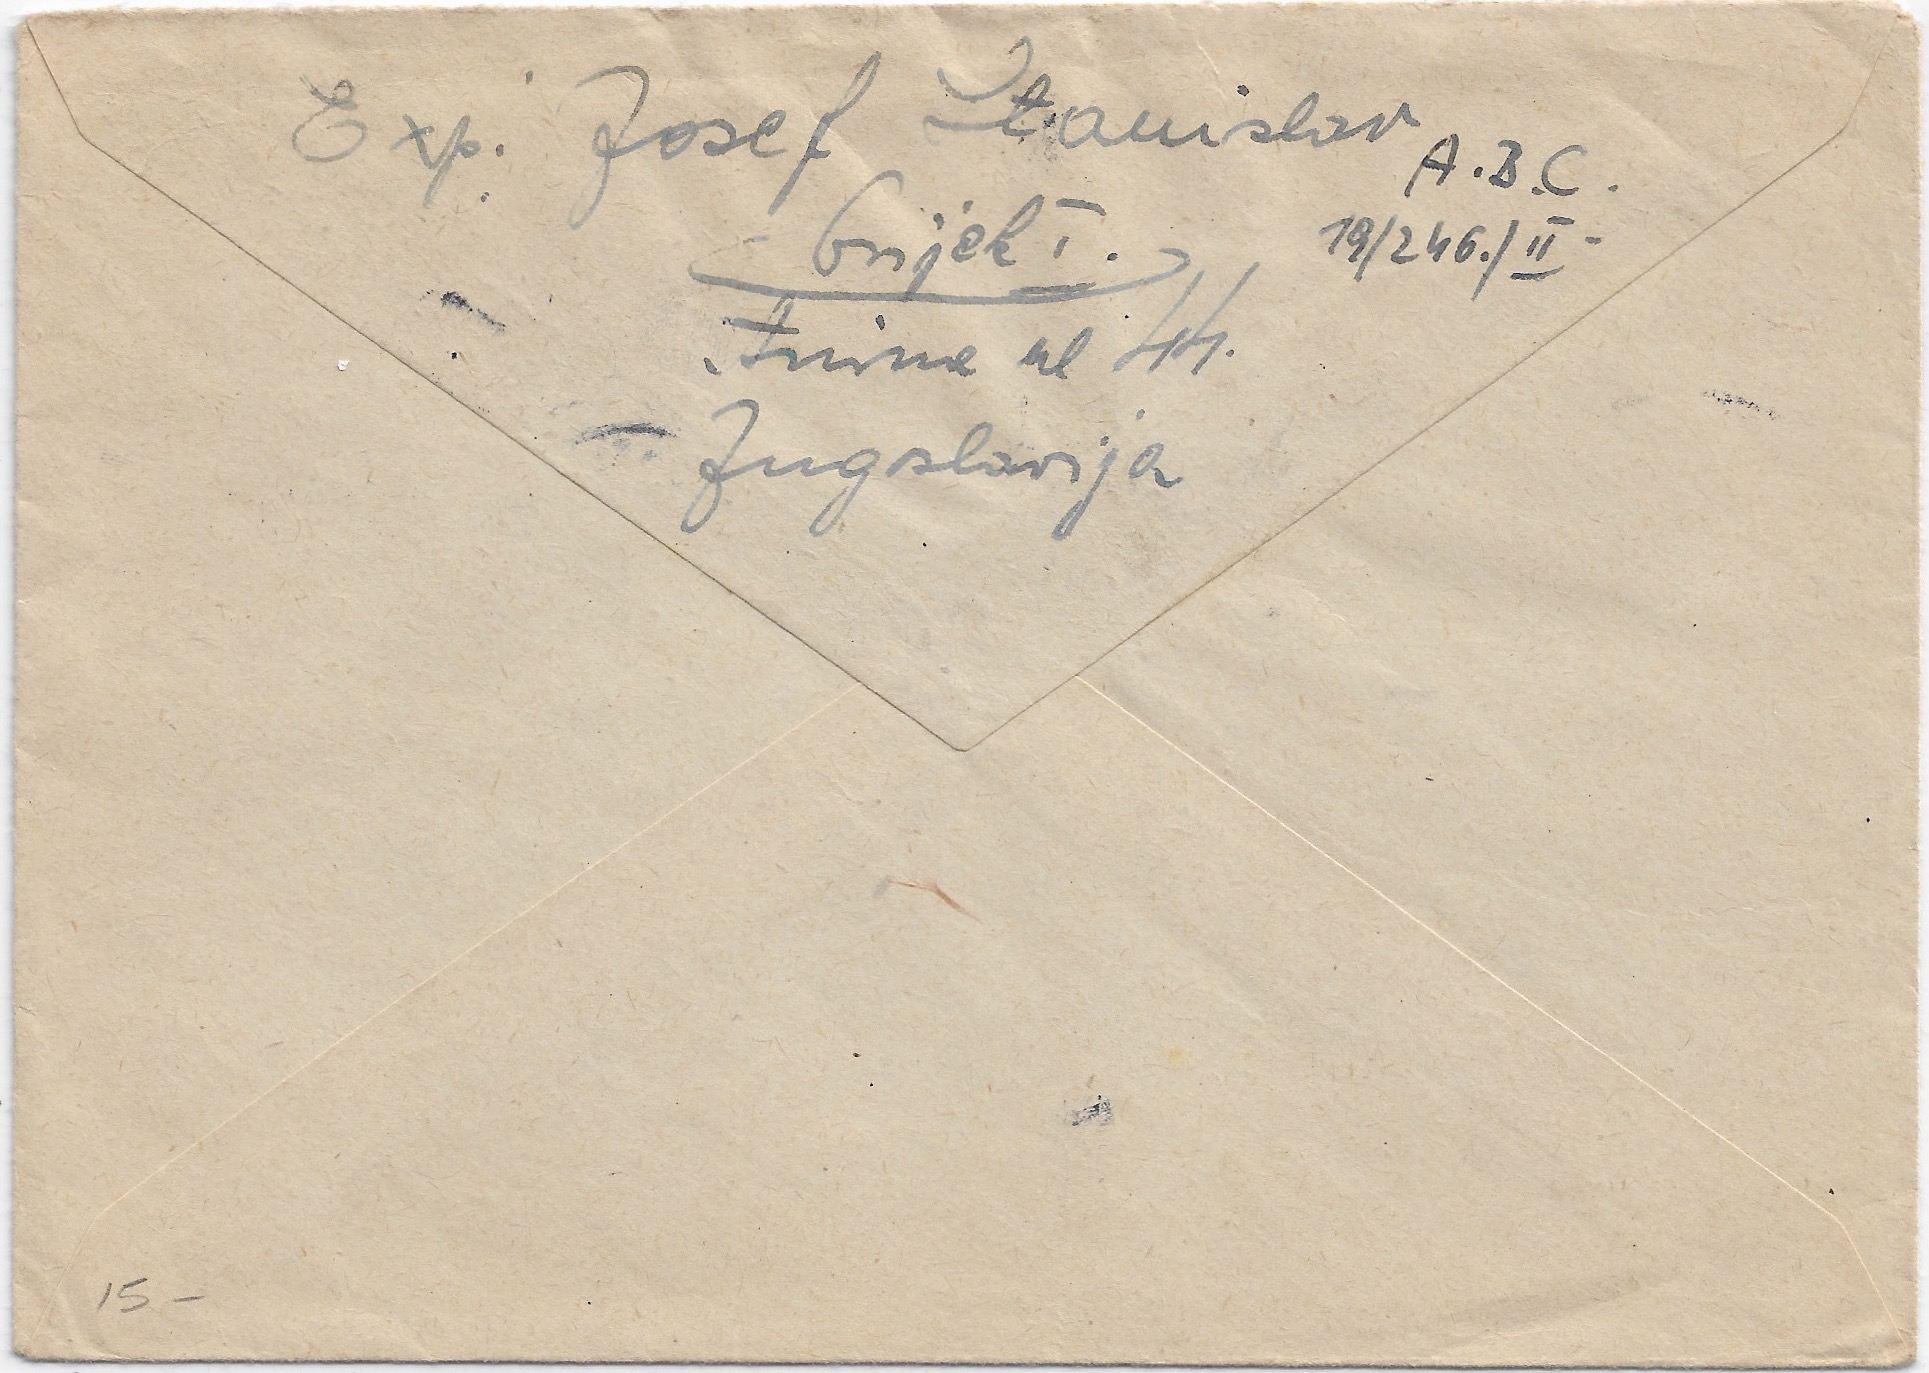 Exp. Josef Stanislav
A.B.C.
Osijek I.
19/246./II-
ul 44.
Jugoslavija
15-